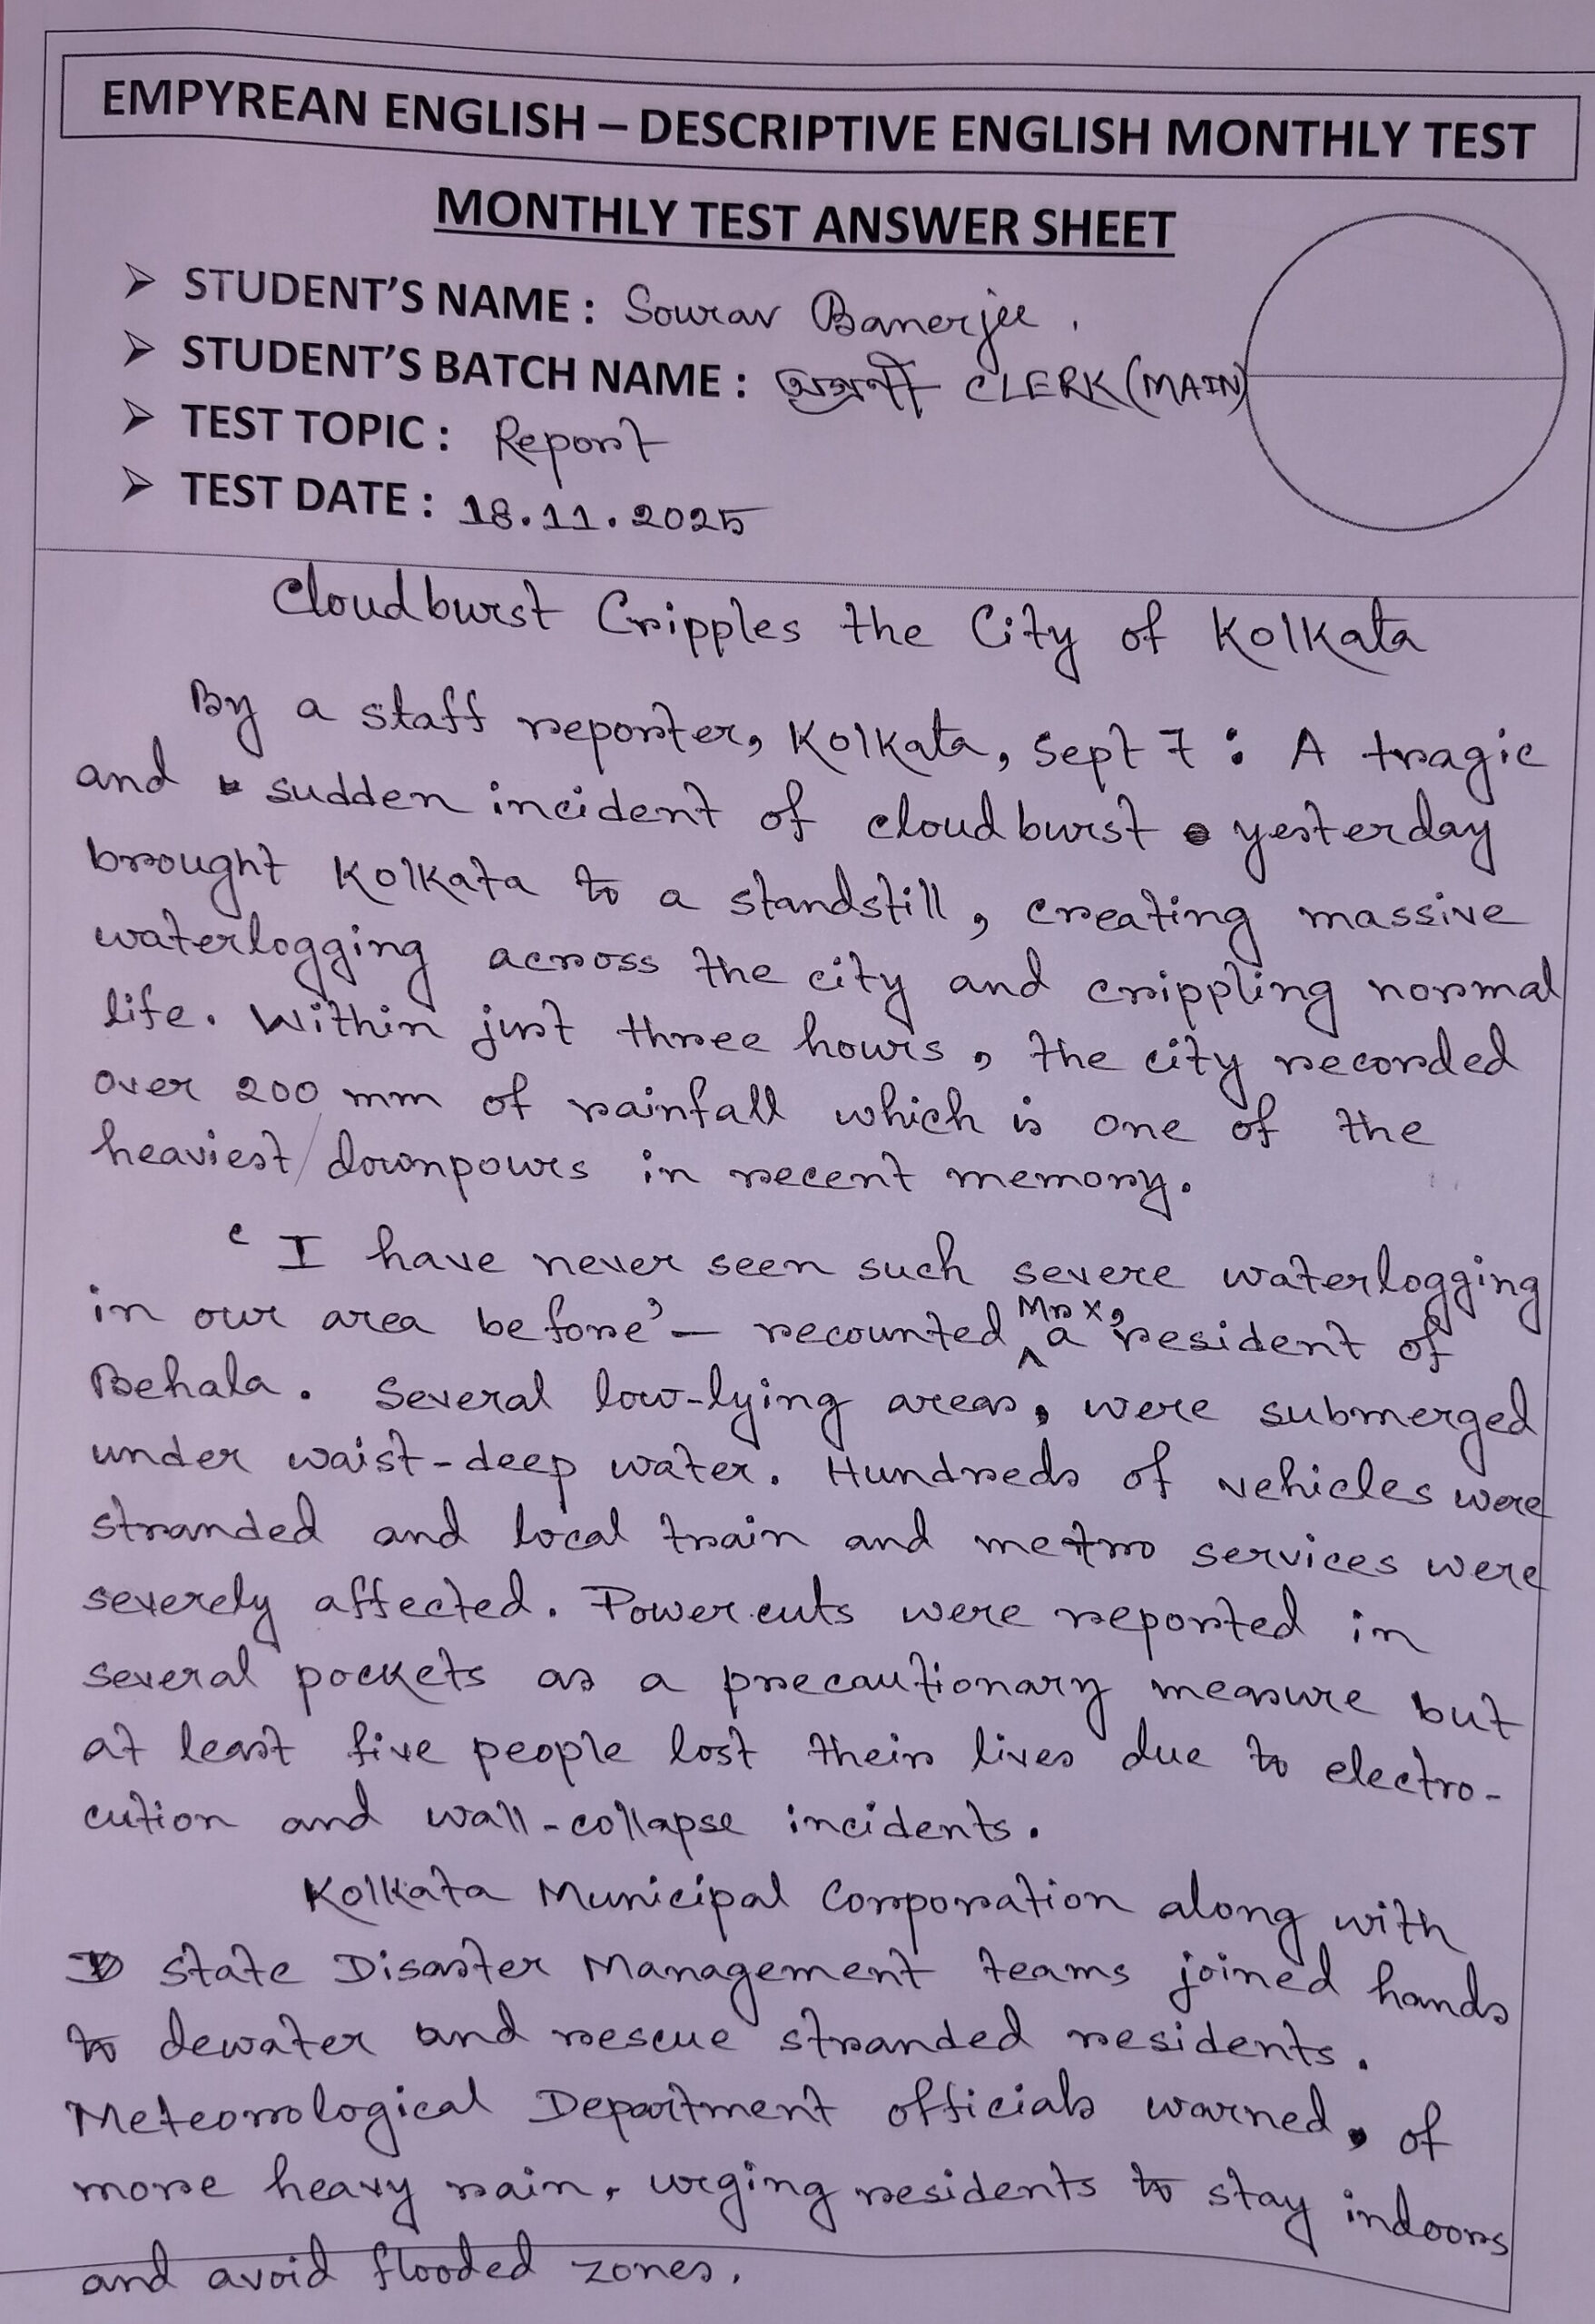 EMPYREAN ENGLISH – DESCRIPTIVE ENGLISH MONTHLY TEST
MONTHLY TEST ANSWER SHEET
➢ STUDENT'S NAME : Sourav Banerjee.
➢ STUDENT'S BATCH NAME : অগ্রণী CLERK (MAIN)
➢ TEST TOPIC : Report
➢ TEST DATE : 18.11.2025
Cloudburst Cripples the City of Kolkata
By a staff reporter, Kolkata, Sept 7 : A tragic
and sudden incident of cloudburst yesterday
brought Kolkata to a standstill, creating massive
waterlogging across the city and crippling normal
life. Within just three hours, the city recorded
over 200 mm of rainfall which is one of the
heaviest/downpours in recent memory.
‘I have never seen such severe waterlogging
in our area before’ – recounted Mr X, a resident of
Behala. Several low-lying areas, were submerged
under waist-deep water. Hundreds of vehicles were
stranded and local train and metro services were
severely affected. Power cuts were reported in
several pockets as a precautionary measure but
at least five people lost their lives due to electro-
cution and wall-collapse incidents.
Kolkata Municipal Corporation along with
State Disaster Management teams joined hands
to dewater and rescue stranded residents.
Meteorological Department officials warned, of
more heavy rain, urging residents to stay indoors
and avoid flooded zones.